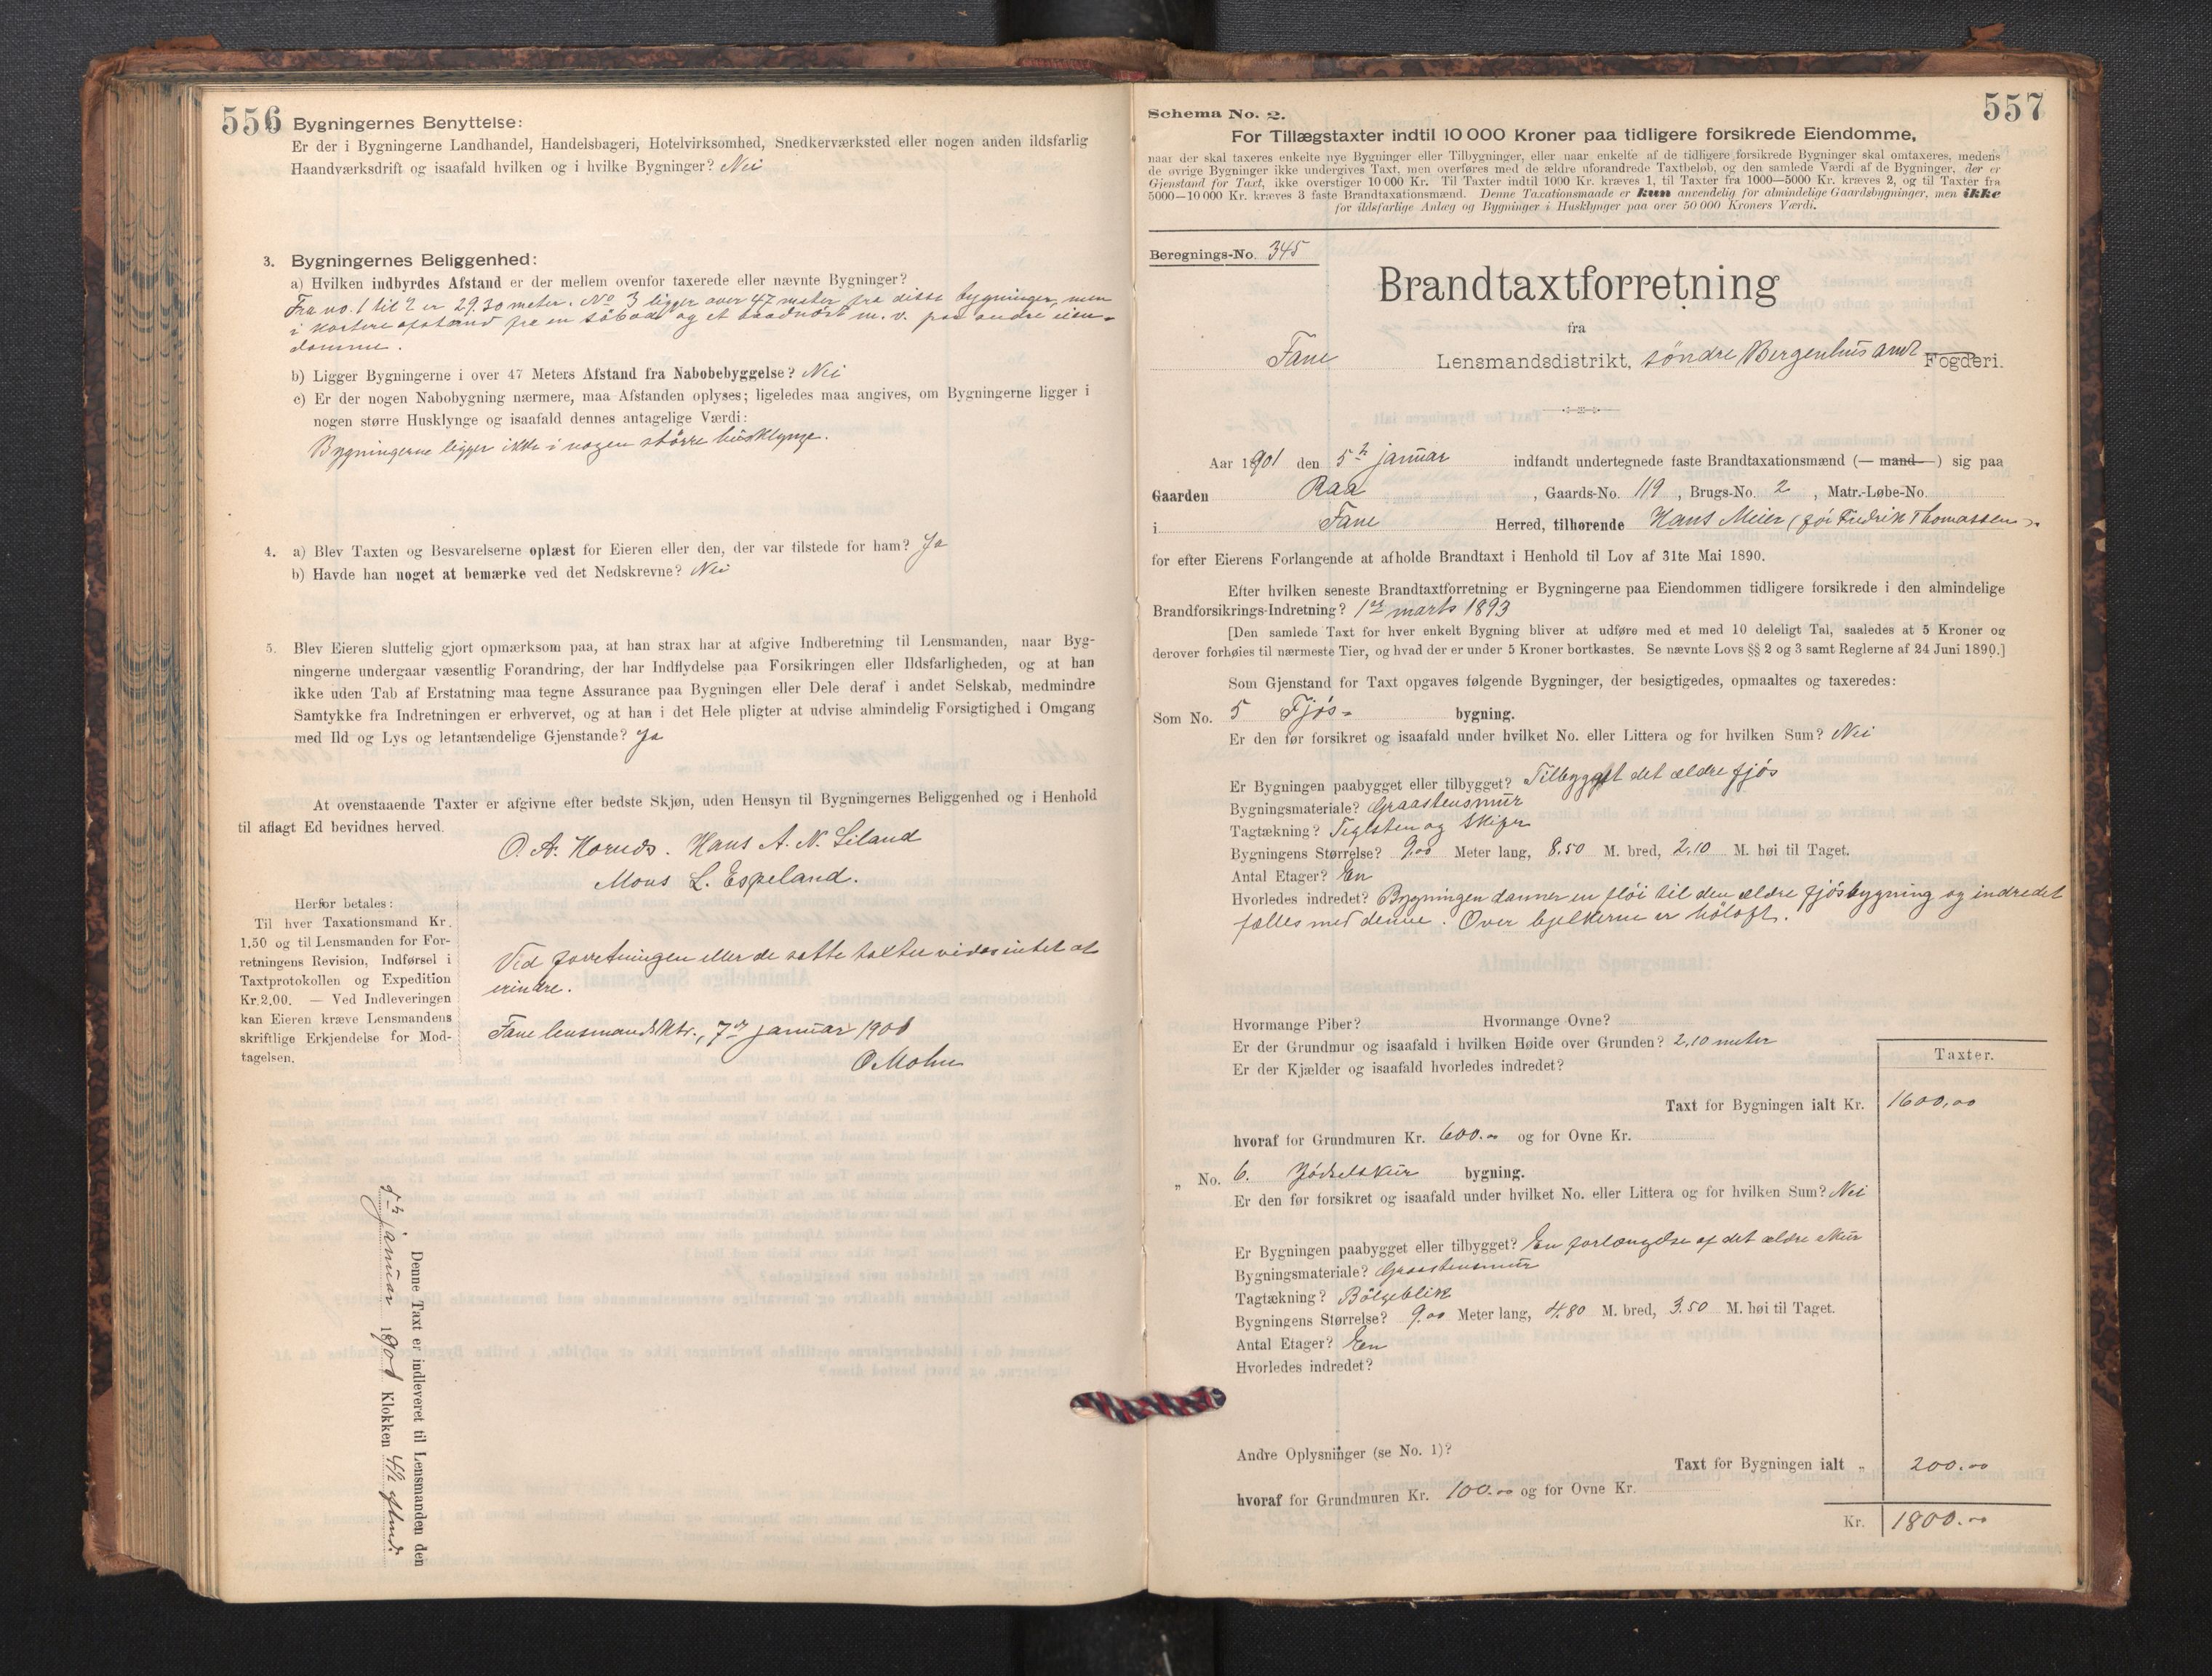 556
Bygningernes Benyttelse:
Er der i Bygningerne Landhandel, Handelsbageri, Hotelvirksomhed, Snedkerværksted eller nogen anden ildsfarlig
Haandværksdrift og isaafald hvilken og i hvilke Bygninger? Nei
3. Bygningernes Beliggenhed:
a) Hvilken indbyrdes Afstand er der mellem ovenfor taxerede eller nævnte Bygninger?
Fra no. 1 til 2 er 29.30 meter. No 3 ligger over 47 meter fra disse bygninger, men
i kortere afstand fra en söbod og et baadnöst m. v. paa andre eien-
domme.
b) Ligger Bygningerne i over 47 Meters Afstand fra Nabobebyggelse? Nei
c) Er der nogen Nabobygning nærmere, maa Afstanden oplyses; ligeledes maa angives, om Bygningerne ligger i
nogen større Husklynge og isaafald dennes antagelige Værdi:
Bygningerne ligger ikke i nogen större husklynge.
4. a) Blev Taxten og Besvarelserne oplæst for Eieren eller den, der var tilstede for ham? Ja
b) Havde han noget at bemærke ved det Nedskrevne? Nei
5. Blev Eieren sluttelig gjort opmærksom paa, at han strax har at afgive Indberetning til Lensmanden, naar Byg-
ningerne undergaar væsentlig Forandring, der har Indflydelse paa Forsikringen eller Ildsfarligheden, og at han
ikke uden Tab af Erstatning maa tegne Assurance paa Bygningen eller Dele deraf i andet Selskab, medmindre
Samtykke fra Indretningen er erhvervet, og at han i det Hele pligter at udvise almindelig Forsigtighed i Omgang
med Ild og Lys og letantændelige Gjenstande? Ja
At ovenstaaende Taxter er afgivne efter bedste Skjøn, uden Hensyn til Bygningernes Beliggenhed og i Henhold
til aflagt Ed bevidnes herved.
O. A. Hornds. Hans A. N. Liland
Mons L. Espeland.
Herfor betales:
Til hver Taxationsmand Kr.
1.50 og til Lensmanden for For-
retningens Revision, Indførsel i
Taxtprotokollen og Expedition
Kr. 2.00. — Ved Indleveringen
kan Eieren kræve Lensmandens
skriftlige Erkjendelse for Mod-
tagelsen.
Ved forretningen eller de satte taxter vides intet at
erindre.
Fane lensmandsktr., 7de januar 1901
O Mohn
Denne Taxt er indleveret til Lensmanden den
5te januar 1901 Klokken 4½ eftmd.
557
Schema No. 2.
For Tillægstaxter indtil 10 000 Kroner paa tidligere forsikrede Eiendomme,
naar der skal taxeres enkelte nye Bygninger eller Tilbygninger, eller naar enkelte af de tidligere forsikrede Bygninger skal omtaxeres, medens
de øvrige Bygninger ikke undergives Taxt, men overføres med de ældre uforandrede Taxtbeløb, og den samlede Værdi af de Bygninger, der er
Gjenstand for Taxt, ikke overstiger 10 000 Kr. Til Taxter indtil 1000 Kr. kræves 1, til Taxter fra 1000—5000 Kr. kræves 2, og til Taxter fra
5000—10 000 Kr. kræves 3 faste Brandtaxationsmænd. Denne Taxationsmaade er kun anvendelig for almindelige Gaardsbygninger, men ikke
for ildsfarlige Anlæg og Bygninger i Husklynger paa over 50 000 Kroners Værdi.
Beregnings-No. 345
Brandtaxtforretning
fra
Fane Lensmandsdistrikt, söndre Bergenhus amt Fogderi.
Aar 1901 den 5te januar indfandt undertegnede faste Brandtaxationsmænd (— mand —) sig paa
Gaarden Raa, Gaards-No. 119, Brugs-No. 2, Matr.-Løbe-No.
i Fane Herred, tilhørende Hans Meier (før Fredrik Thomassen).
for efter Eierens Forlangende at afholde Brandtaxt i Henhold til Lov af 31te Mai 1890.
Efter hvilken seneste Brandtaxtforretning er Bygningerne paa Eiendommen tidligere forsikrede i den almindelige
Brandforsikrings-Indretning? 1ste marts 1893
[Den samlede Taxt for hver enkelt Bygning bliver at udføre med et med 10 deleligt Tal, saaledes at 5 Kroner og
derover forhøies til nærmeste Tier, og hvad der er under 5 Kroner bortkastes. Se nævnte Lovs §§ 2 og 3 samt Reglerne af 24 Juni 1890.]
Som Gjenstand for Taxt opgaves følgende Bygninger, der besigtigedes, opmaaltes og taxeredes:
Som No. 5 Fjös- bygning.
Er den før forsikret og isaafald under hvilket No. eller Littera og for hvilken Sum? Nei
Er Bygningen paabygget eller tilbygget? Tilbygget det ældre fjös
Bygningsmateriale? Graastensmur
Tagtækning? Teglsten og Skifer
Bygningens Størrelse? 9.00 Meter lang, 8.50 M. bred, 2.10 M. høi til Taget.
Antal Etager? En
Hvorledes indredet? Bygningen danner en flöi til den ældre fjösbygning og indredet
fælles med denne. Over bjelkerne er höloft.
Hvormange Piber? Hvormange Ovne?
Er der Grundmur og isaafald i hvilken Høide over Grunden? 2.10 meter
Er der Kjælder og isaafald hvorledes indredet?
Taxter.
Taxt for Bygningen ialt Kr. 1600,00
hvoraf for Grundmuren Kr. 600.00 og for Ovne Kr.
„ No. 6. Gjödselskur bygning.
Er den før forsikret og isaafald under hvilket No. eller Littera og for hvilken Sum? Nei
Er Bygningen paabygget eller tilbygget? En forlængelse af det ældre skur
Bygningsmateriale? Graastensmur
Tagtækning? Bölgeblik
Bygningens Størrelse? 9.00 Meter lang, 4.80 M. bred, 3.50 M. høi til Taget.
Antal Etager? En
Hvorledes indredet?
Andre Oplysninger (se No. 1)?
Taxt for Bygningen ialt „ 200.00
hvoraf for Grundmuren Kr. 100.00 og for Ovne Kr.
Kr. 1800.00